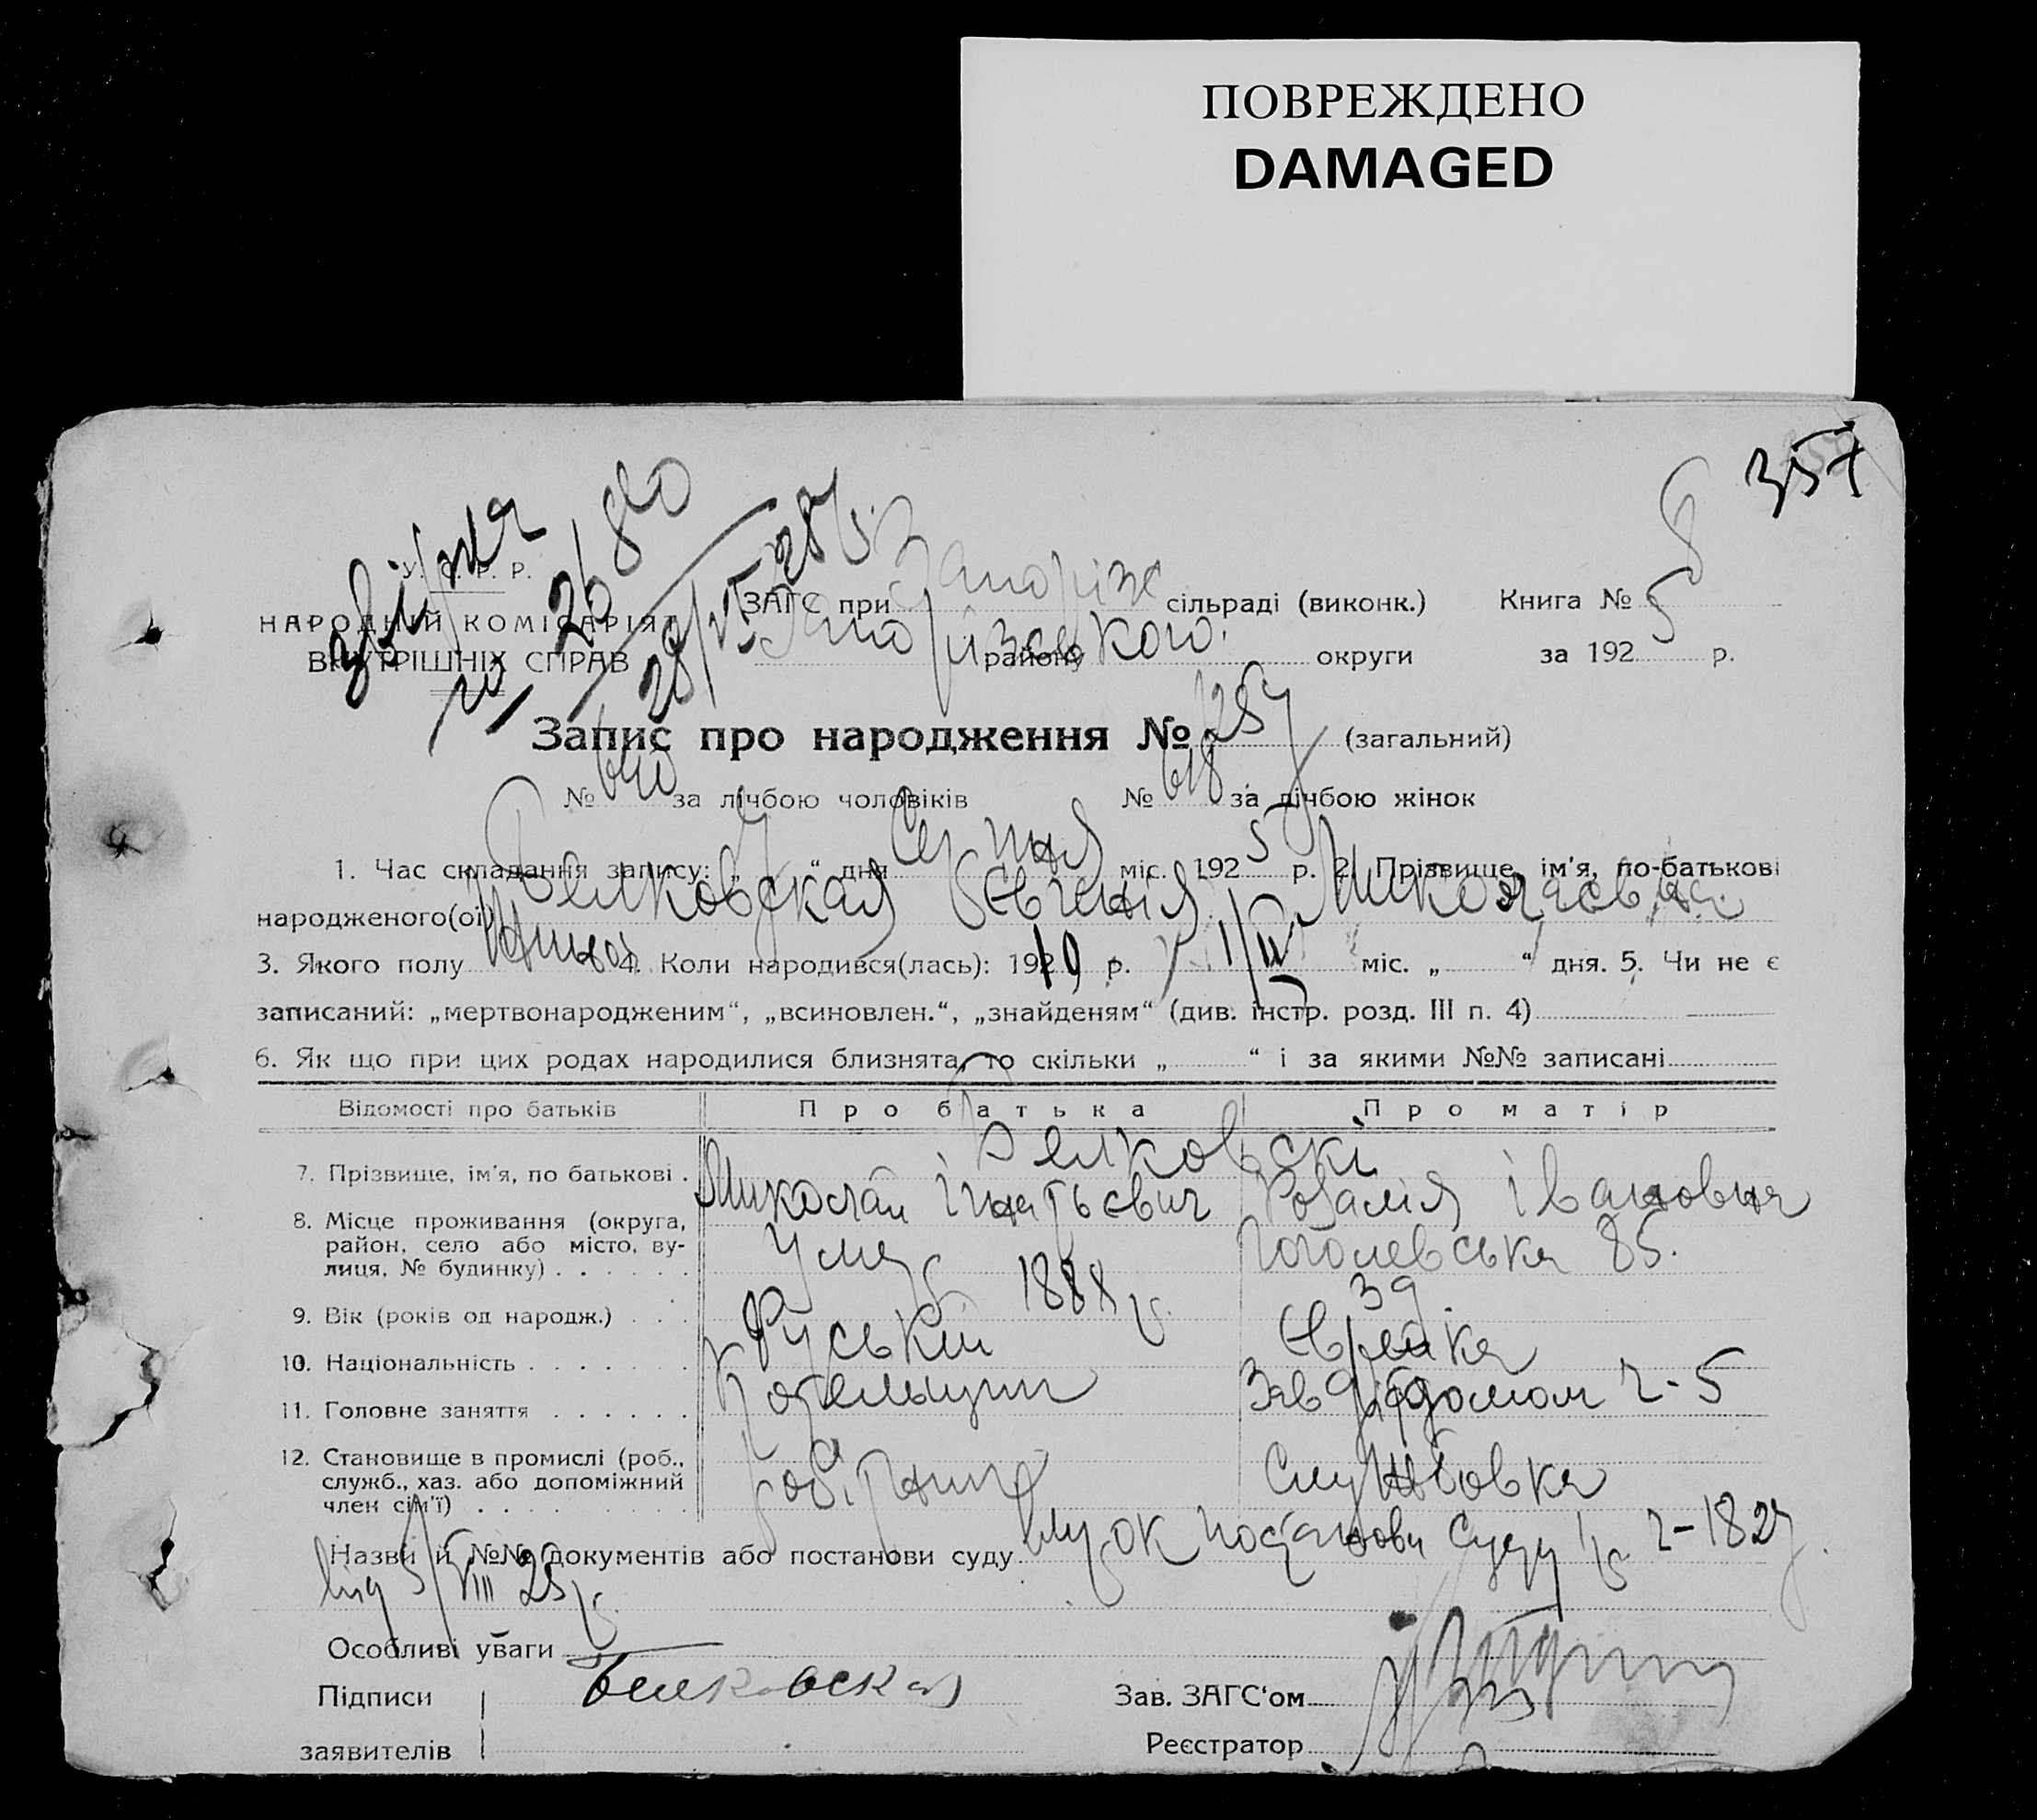 ПОВРЕЖДЕНО
DAMAGED
357
У. С. Р. Р.
НАРОДНІЙ КОМІСАРІЯТ
ВНУТРІШНІХ СПРАВ
ЗАГС при Запорізс сільраді (виконк.) Книга № 8
Запорізського району округи за 1925 р.
Запис про народження № 1257 (загальний)
№ 640 за лічбою чоловіків № 618 за лічбою жінок
1. Час складання запису: „7“ дня Серпня міс. 1925 р. 2. Прізвище, ім'я, по-батькові
народженого(ої) Белковская Євгенія Миколаєвна
3. Якого полу Жіноч 4. Коли народився(лась): 1919 р. 1/IV міс. „ “ дня. 5. Чи не є
записаний: „мертвонародженим“, „всиновлен.“, „знайденям“ (див. інстр. розд. III п. 4)
6. Як що при цих родах народилися близнята, то скільки „ “ і за якими №№ записані
Відомості про батьків Про батька Про матір
Белковскі
7. Прізвище, ім'я, по батькові . Миколай Ігнатьєвич Розалія Івановна
8. Місце проживання (округа, район, село або місто, вулиця, № будинку) . . . . . . Гоголевська 85.
9. Вік (років од народж.) . . . 1888 р. 39.
10. Національність . . . . . . . Руський Єврейка
11. Головне заняття . . . . . . Котельщик Зав дітдомом ч-5
12. Становище в промислі (роб., служб., хаз. або допоміжний член сім'ї) . . . . . . . . робітник службовка
Назви й №№ документів або постанови суду постанови суду ч-1827.
від 5/VIII 25 р.
Особливі уваги
Підписи Белковская Зав. ЗАГС'ом
заявителів Реєстратор